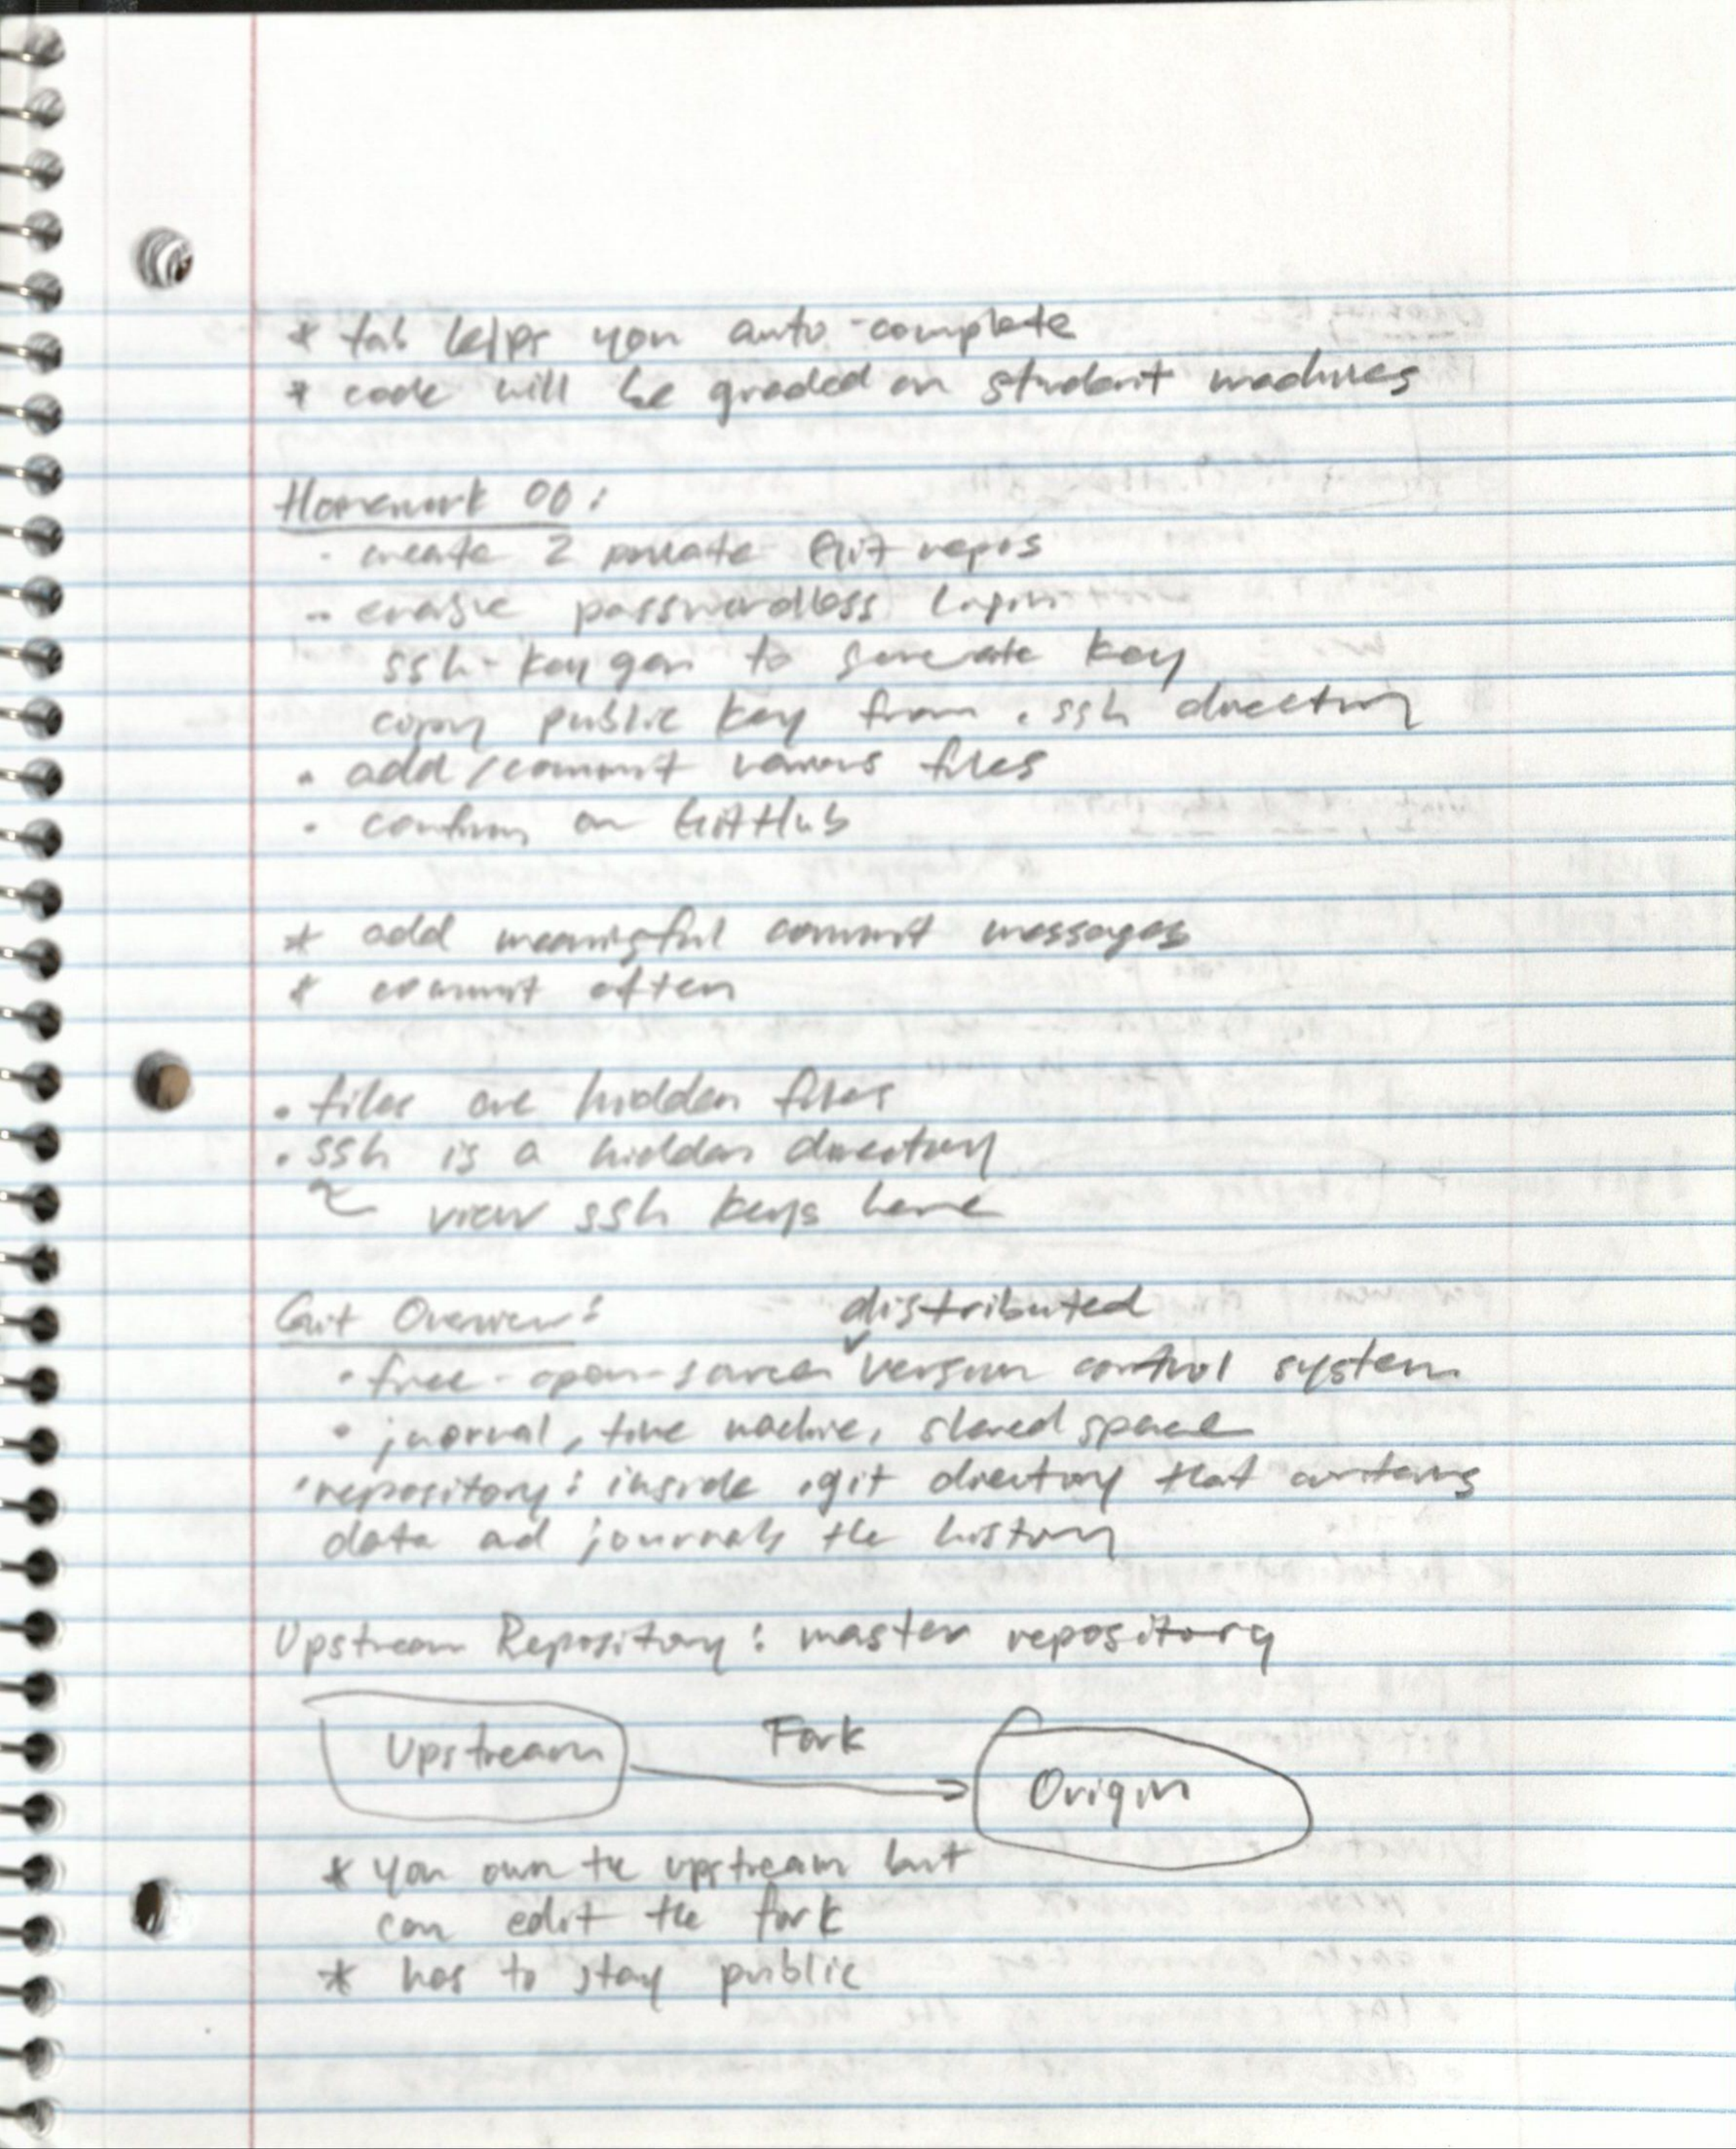 * tab helps you auto-complete
* code will be graded on student machines
Homework 00:
- create 2 private Git repos
- enable passwordless login
ssh-keygen to generate key
copy public key from .ssh directory
• add/commit various files
• confirm on GitHub
* add meaningful commit messages
* commit often
. files are hidden files
.ssh is a hidden directory
~ view ssh keys here
Git Overview:
distributed
• free-open-source version control system
• juornal, time machine, shared space
• repository: inside .git directory that contains
data ad journals the history
Upstream Repository: master repository
Upstream
Fork
Origin
* you own the upstream but
can edit the fork
* has to stay public